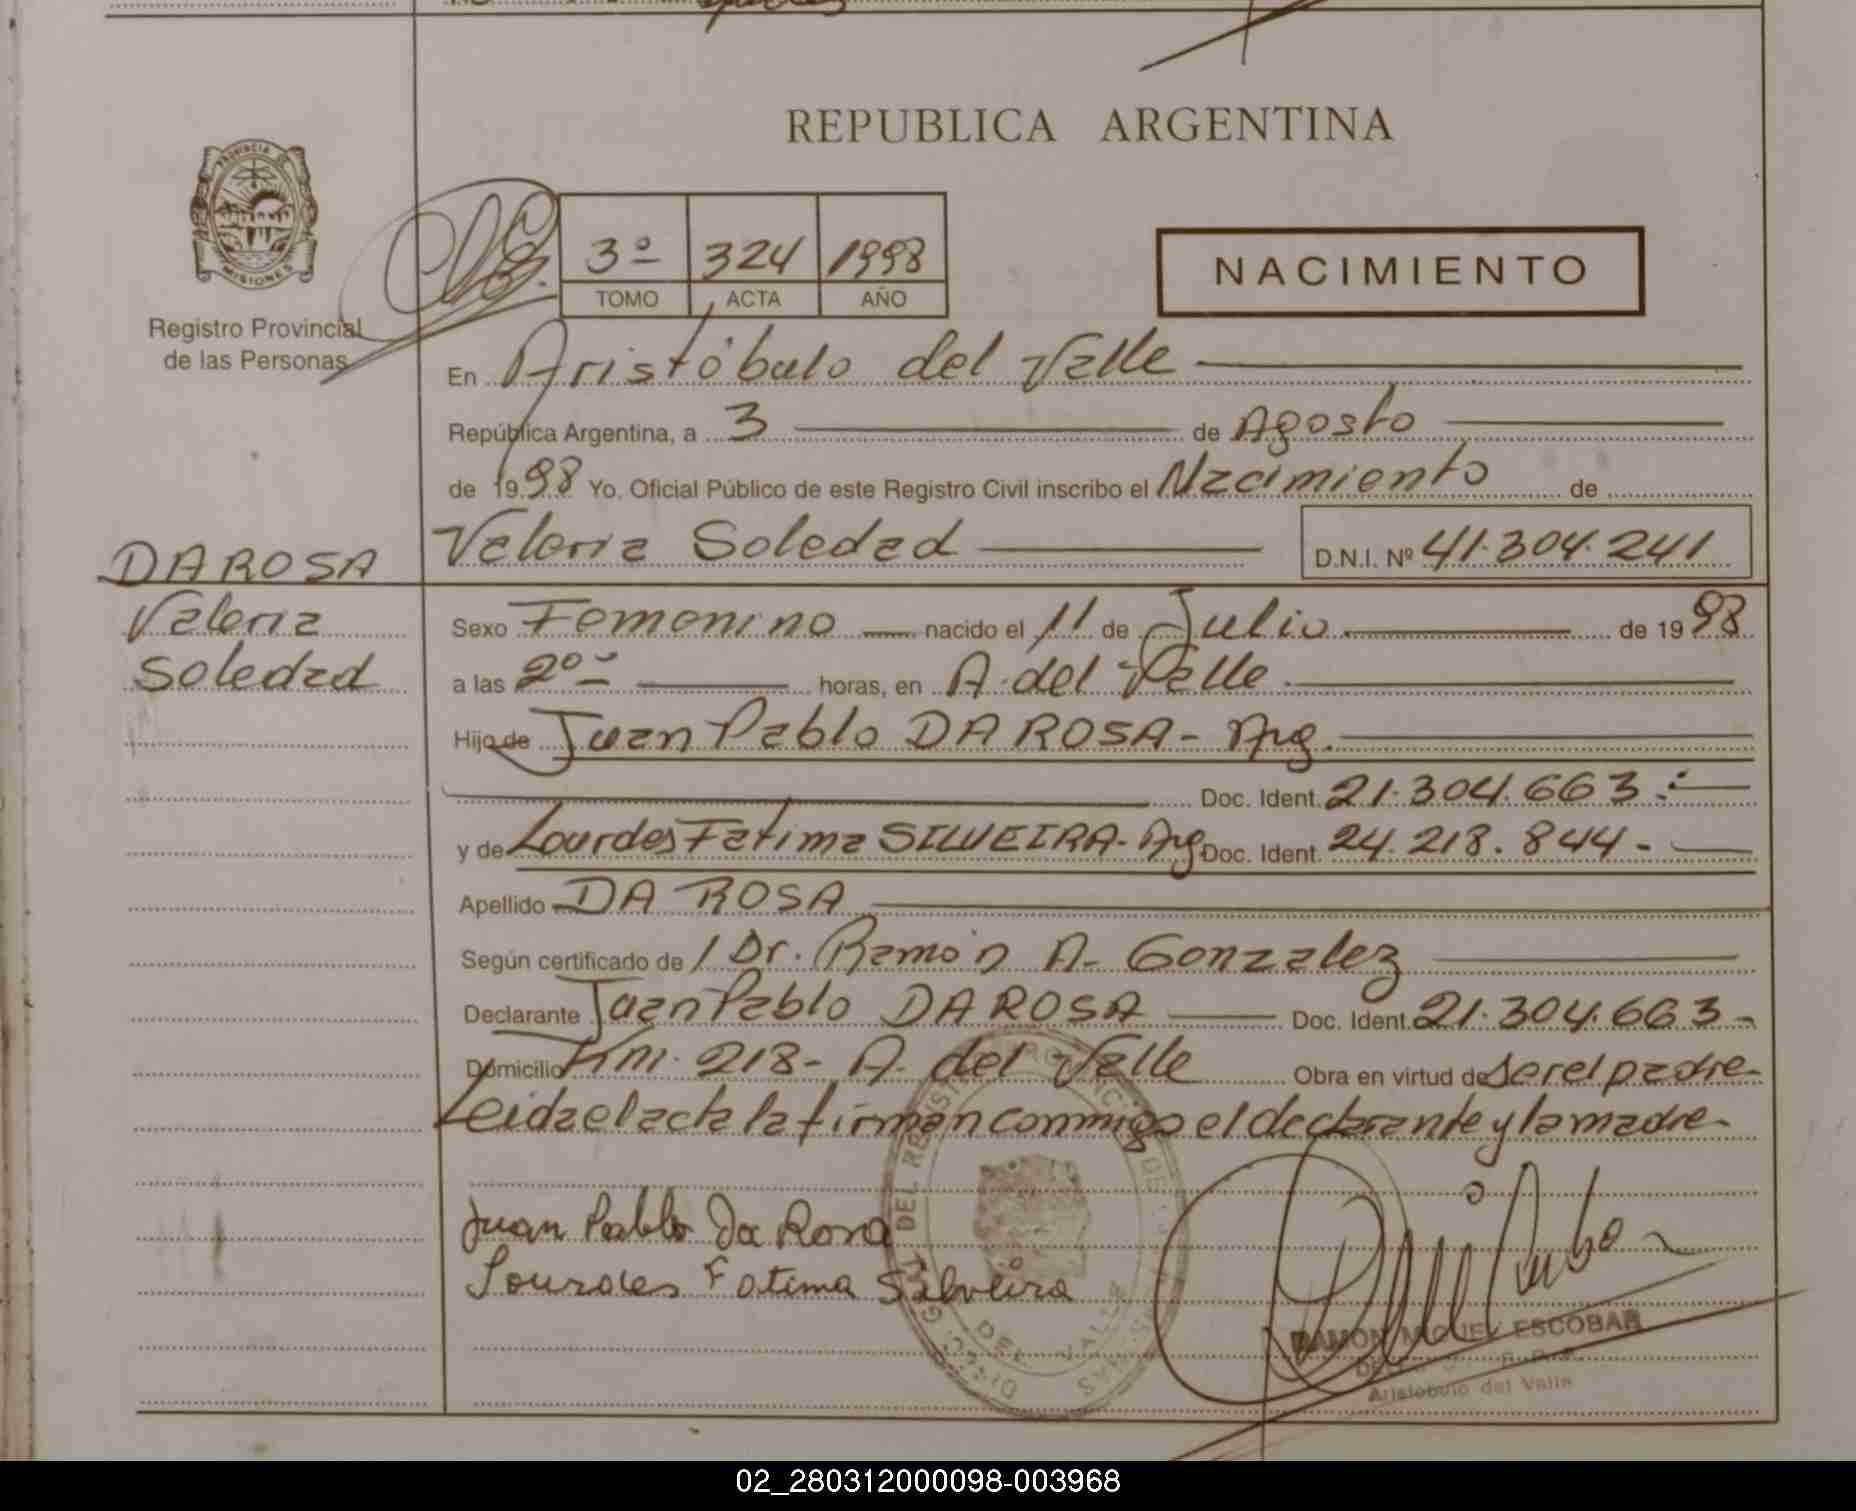 REPUBLICA ARGENTINA
PROVINCIA DE
MISIONES
Registro Provincial
de las Personas
3º 324 1998
TOMO ACTA AÑO
NACIMIENTO
En Aristóbulo del Valle
República Argentina, a 3 de Agosto
de 1998 Yo. Oficial Público de este Registro Civil inscribo el Nacimiento de
Valeria Soledad D.N.I. Nº 41.304.241
DA ROSA
Valeria
Soledad
Sexo Femenino nacido el 11 de Julio de 1998
a las 2º horas, en A. del Valle
Hijo de Juan Pablo DA ROSA - Arg.
Doc. Ident. 21.304.663
y de Lourdes Fatima SILVEIRA - Arg. Doc. Ident. 24.218.844 -
Apellido DA ROSA
Según certificado de / Dr. Ramón A. Gonzalez
Declarante Juan Pablo DA ROSA Doc. Ident. 21.304.663 -
Domicilio Km. 218 - A. del Valle Obra en virtud de ser el padre -
Leida el acta la firman conmigo el declarante y la madre -
Juan Pablo Da Rosa
Lourdes Fatima Silveira
RAMON MIGUEL ESCOBAR
Aristobulo del Valle
02_280312000098-003968